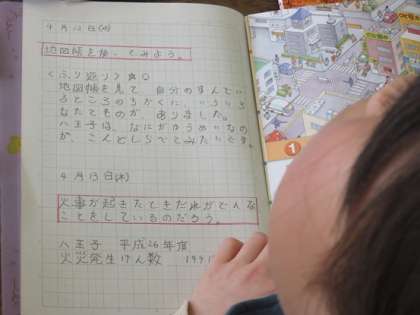 4月12日(火)
地図帳を使ってみよう。
くふり返り>
地図帳を見て、自分のすんでい
るところのちかくに、いろいろ
なたてものが、ありました。
八王子は、なにがゆうめいなの
か、こんどしらべてみたいです。
4月13日(水)
火事が起きたときだれがどんな
ことをしているのだろう。
八王子 平成26年度
火災発生けん数 199
1